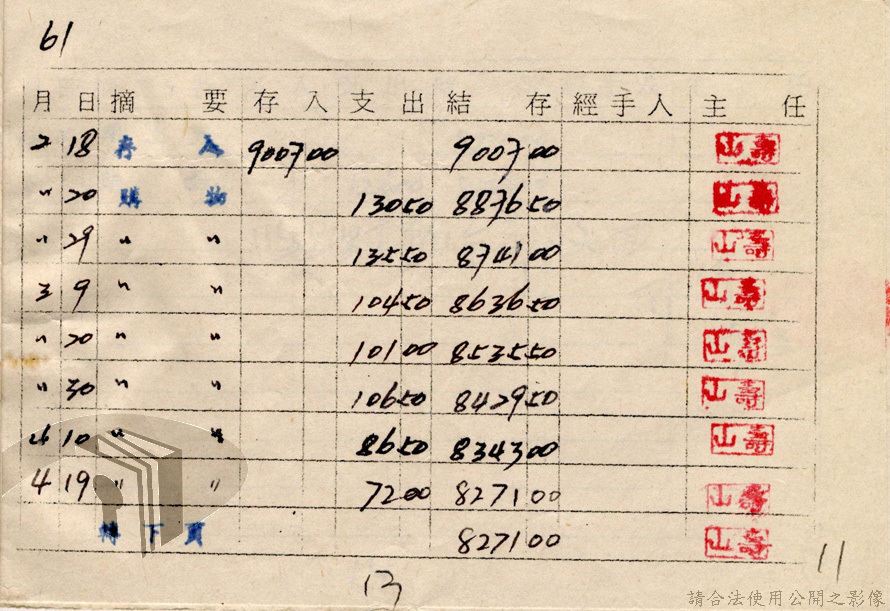 61
月 日 摘 要 存 入 支 出 結 存 經手人 主 任
2 18 存 入 9007 00 9007 00 壽山
〃 20 購 物 130 50 8876 50 壽山
〃 29 〃 〃 135 50 8741 00 壽山
3 9 〃 〃 104 50 8636 50 壽山
〃 20 〃 〃 101 00 8535 50 壽山
〃 30 〃 〃 106 50 8429 50 壽山
4 10 〃 〃 86 50 8343 00 壽山
4 19 〃 〃 72 00 8271 00 壽山
轉下頁 8271 00 壽山
13
11
請合法使用公開之影像